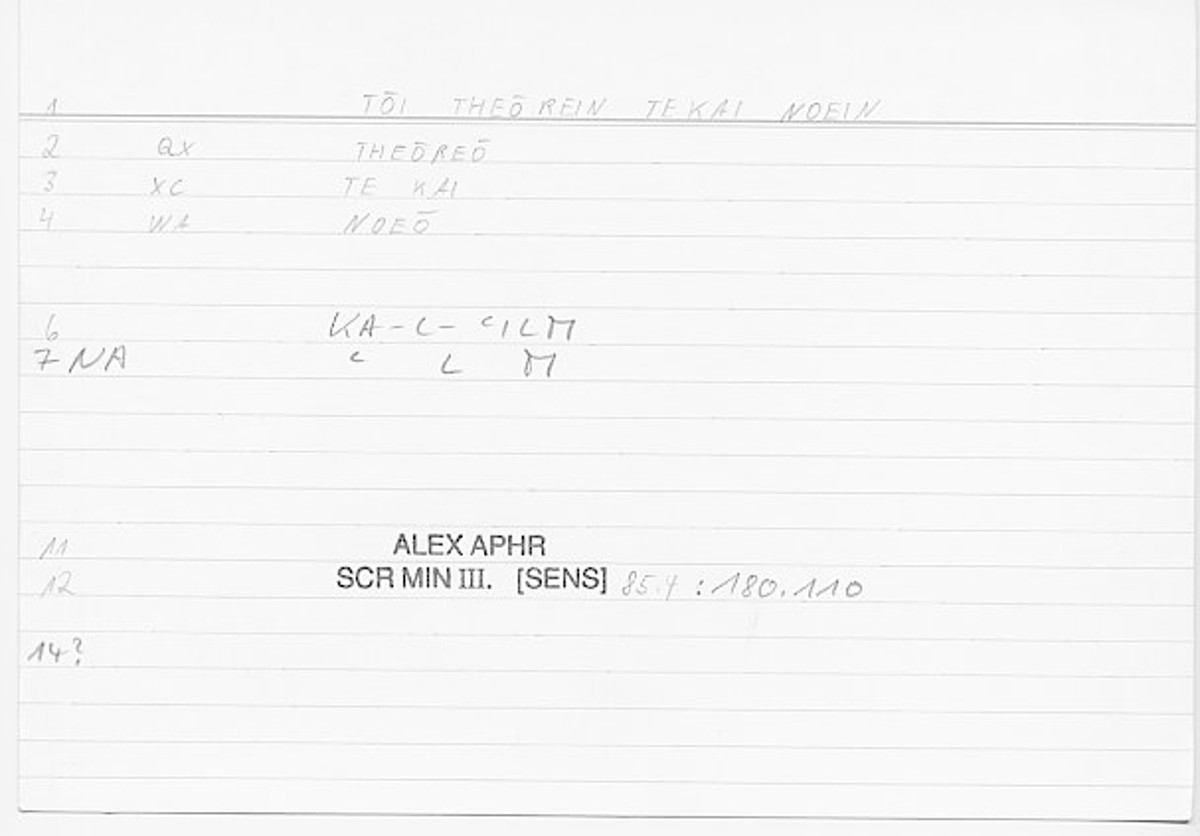 1 TŌI THEŌREIN TE KAI NOEIN
2 QX THEŌREŌ
3 XC TE KAI
4 WA NOEŌ
6 KA-L- CILM
7 NA C L M
11 ALEX APHR
12 SCR MIN III. [SENS] 85.4 : 180.110
14?